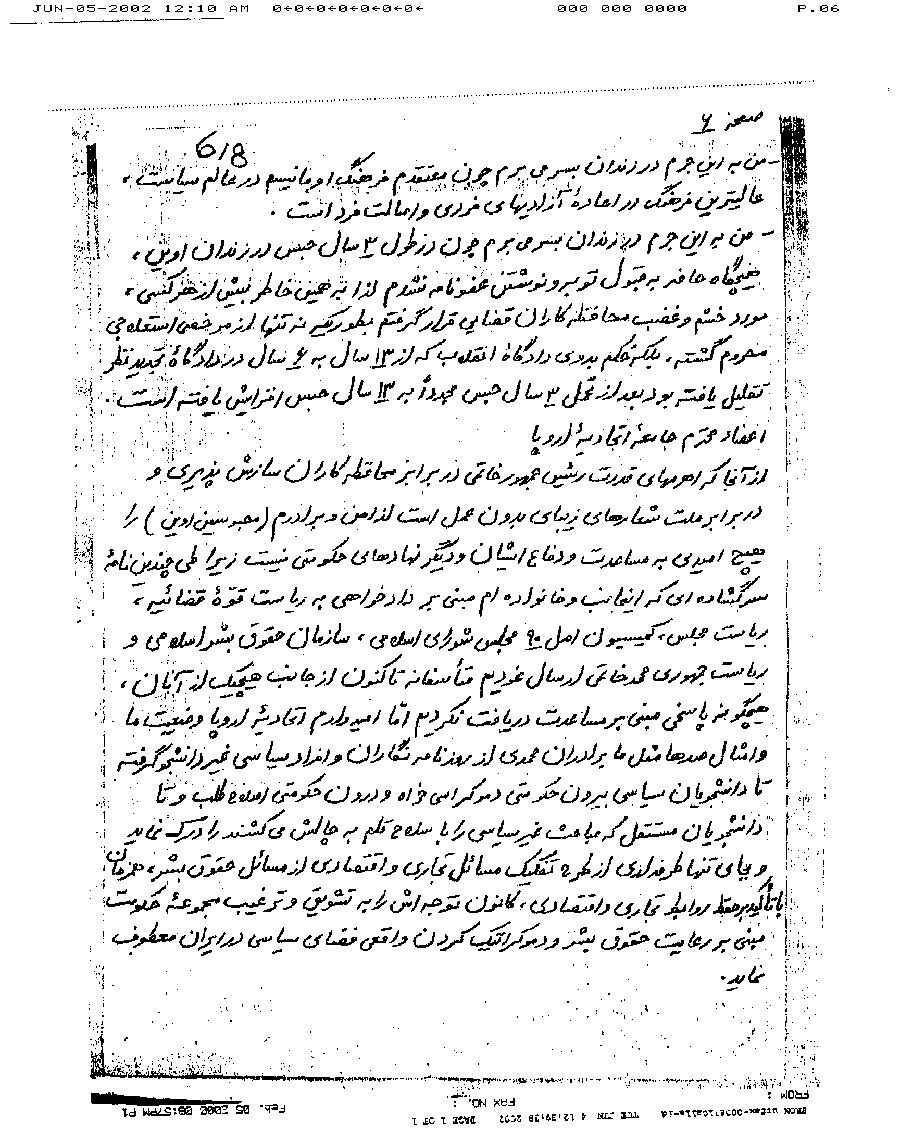 JUN-05-2002 12:10 AM 0÷0÷0÷0÷0÷0÷0÷ 000 000 0000 P.06
صفحه ۶
6/8
- من به این جرم در زندان بسر می برم چون معتقدم فرهنگ اومانیسم در عالم سیاست،
عالیترین فرهنگ در اعادهٔ آزادیهای فردی و اصالت فرد است.
- من به این جرم در زندان بسر می برم چون در طول ۳ سال حبس در زندان اوین،
هیچگاه حاضر به قبول توبه و نوشتن عفونامه نشدم لذا به همین خاطر بیش از هر کسی،
مورد خشم و غضب محافظه کاران قضایی قرار گرفتم بطوریکه نه تنها از مرخصی استعلاجی
محروم گشته، بلکه حکم بدوی دادگاه انقلاب که از ۱۳ سال به ۶ سال در دادگاهٔ تجدیدنظر
تقلیل یافته بود بعد از تحمل ۳ سال حبس مجدداً به ۱۳ سال حبس افزایش یافته است.
اعضاء محترم جامعهٔ اتحادیهٔ اروپا
از آنجا که اهرمهای قدرت رئیس جمهور خاتمی در برابر محافظه کاران سازش پذیری و
در برابر ملت شعارهای زیبای بدون عمل است لذا من و برادرم (محبوسین اوین) را
هیچ امیدی به مساعدت و دفاع ایشان و دیگر نهادهای حکومتی نیست زیرا طی چندین نامهٔ
سرگشاده ای که اینجانب و خانواده ام مبنی بر دادخواهی به ریاست قوهٔ قضائیه،
ریاست مجلس، کمیسیون اصل ۹۰ مجلس شورای اسلامی، سازمان حقوق بشر اسلامی و
ریاست جمهوری محمد خاتمی ارسال نمودیم متأسفانه تاکنون از جانب هیچیک از آنان،
هیچگونه پاسخی مبنی بر مساعدت دریافت نکردیم اما امیدوارم اتحادیهٔ اروپا وضعیت ما
و امثال صدها مثل ما برادران محمدی از روزنامه نگاران و افراد سیاسی غیر دانشجو گرفته
تا دانشجویان سیاسی بیرون حکومتی دموکراسی خواه و درون حکومتی اصلاح طلب و تا
دانشجویان مستقل که مباحث غیر سیاسی را با سلاح قلم به چالش می کشند را درک نماید
و بجای تنها طرفداری از طرح تفکیک مسائل تجاری و اقتصادی از مسائل حقوق بشر، همزمان
با تأکید بر حفظ روابط تجاری و اقتصادی، کانون توجه اش را به تشویق و ترغیب مجموعهٔ حکومت
مبنی بر رعایت حقوق بشر و دموکراتیک کردن واقعی فضای سیاسی در ایران معطوف
نماید.
FROM :
FAX NO. :
Feb. 05 2000 08:57PM P1
TUE JUN 4 12:39:38 2002 PAGE 1 OF 1